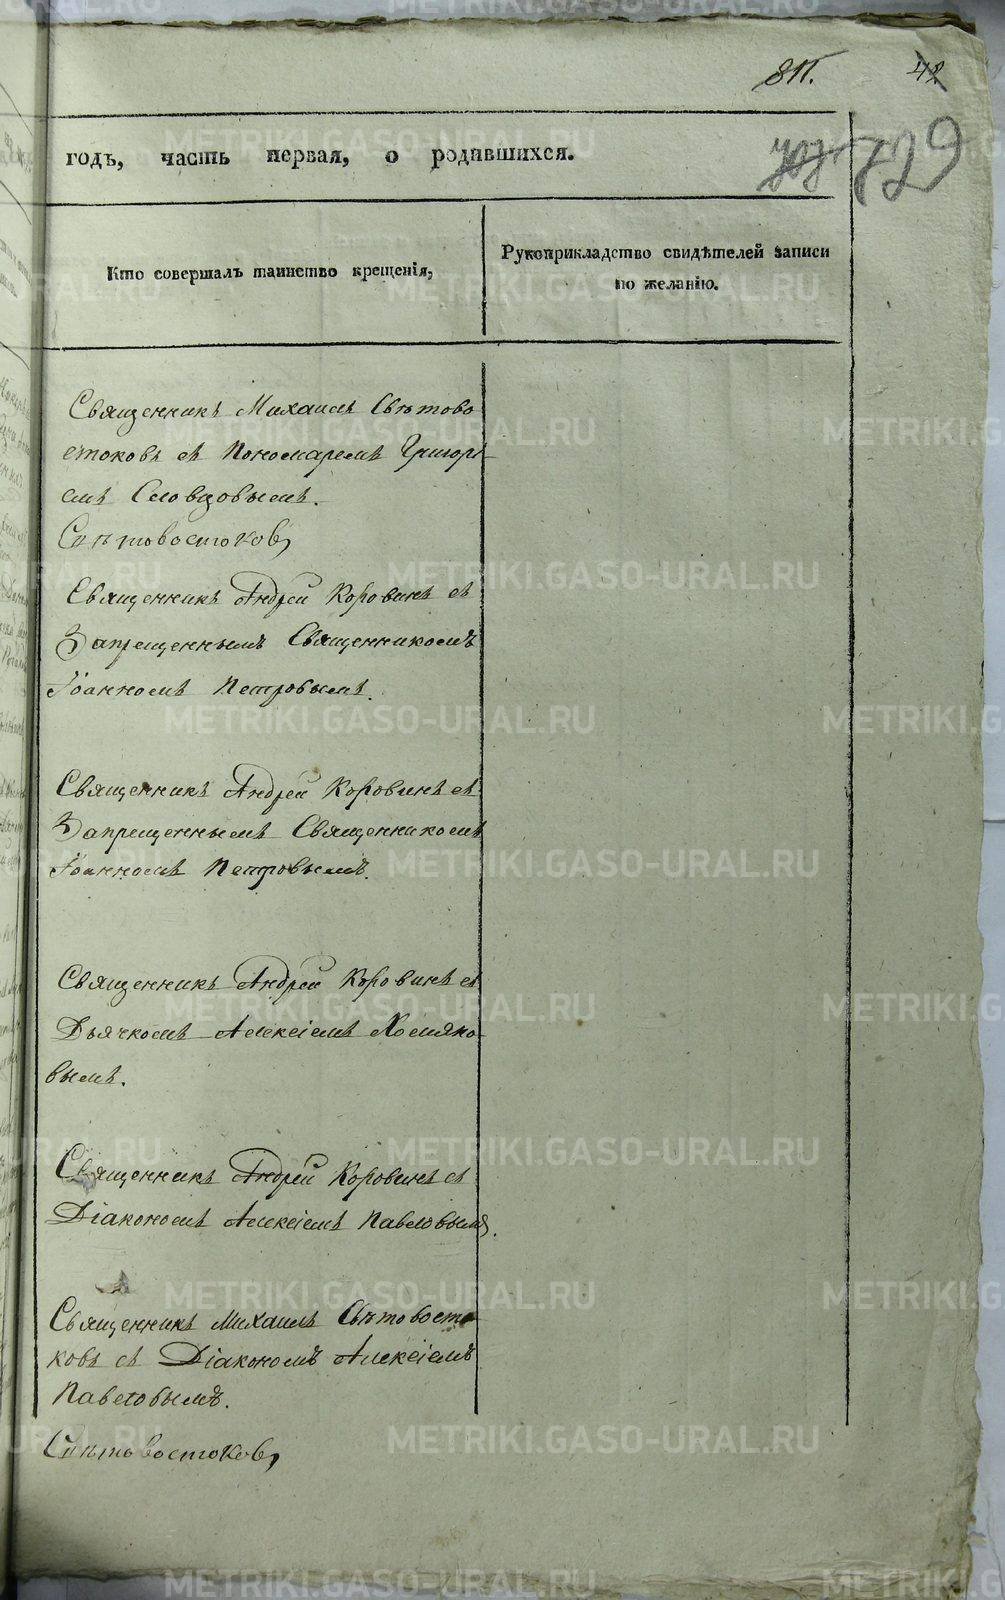 811.
42
729
годъ, часть первая, о родившихся.
Кто совершалъ таинство крещенія,
Рукоприкладство свидѣтелей записи
по желанію.
Священникъ Михаилъ Свѣтово
стоковъ съ Пономаремъ Григорі-
емъ Словцовымъ.
Свѣтовостоковъ
Священникъ Андрей Коровинъ съ
Запрещеннымъ Священникомъ
Іоанномъ Петровымъ.
Священникъ Андрей Коровинъ съ
Запрещеннымъ Священникомъ
Іоанномъ Петровымъ.
Священникъ Андрей Коровинъ съ
Дьячкомъ Алексіемъ Хомяко-
вымъ.
Священникъ Андрей Коровинъ съ
Діакономъ Алексіемъ Павловымъ.
Священникъ Михаилъ Свѣтовосто
ковъ съ Діакономъ Алексіемъ
Павловымъ.
Свѣтовостоковъ
METRIKI.GASO-URAL.RU